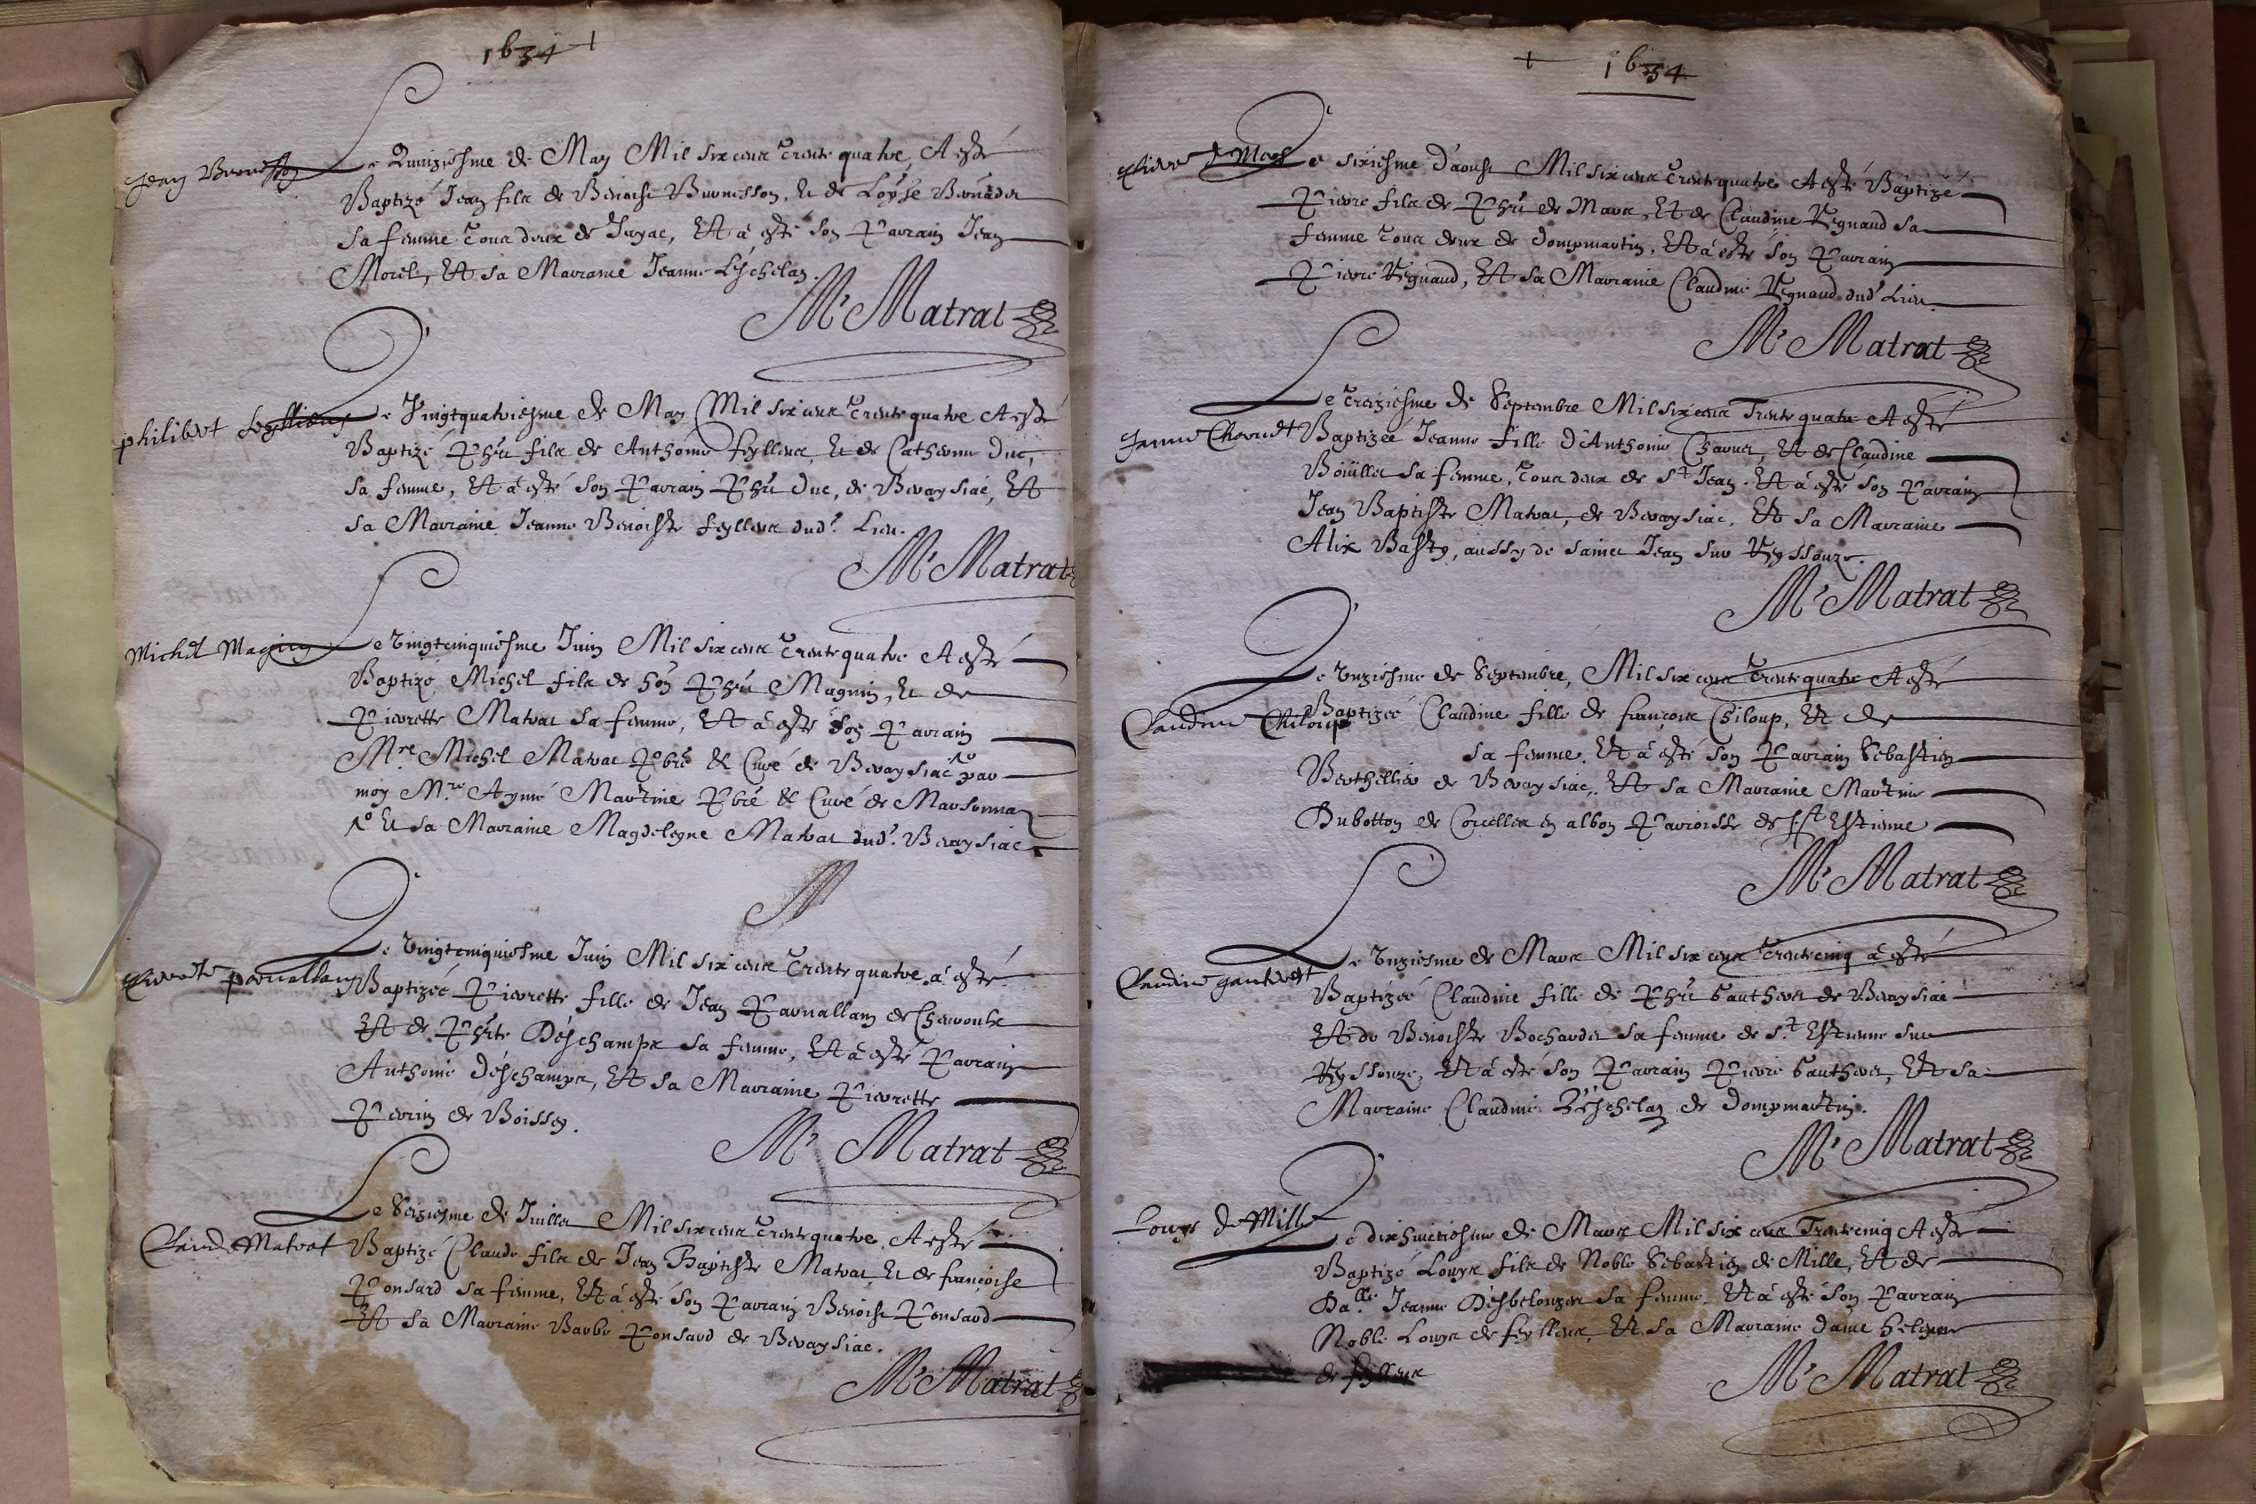 1634
Jean Buvnisson
Le Quinziesme de May Mil six cens trente quatre, A esté
Baptizé Jean filz de Benoist Buvnisson, et de Loyse
sa femme tous deux de Jayac, Et a esté son Parrain Jean
Morel, Et sa Marraine Jeanne Leschelan.
Mr Matrat
philibert feylliens
Le Vingtquatriesme de May Mil six cens trente quatre A esté
Baptizé Phut filz de Anthoine feyllens, et de Catherine Duc,
sa femme, Et a esté son Parrain Phut Duc, de Bevaysiac, Et
sa Marraine Jeanne Benoiste feyllens dudt. Lieu.
Mr Matrat
Michel Magnin
Le vingtcinquiesme Juin Mil six cens trente quatre A esté
Baptizé Michel filz de hon Phut Magnin, et de
Pierrette Matrat sa femme, Et a esté son Parrain
Mre Michel Matrat Pbre & Curé de Bevaysiac par
moy Mre Aymé Martine Pbre & Curé de Marsonnaz
Et sa Marraine Magdelegne Matrat dudt. Bevaysiac
M
Pierrette parvallain
Le vingtcinquiesme Juin Mil six cens trente quatre, a esté
Baptizée Pierrette fille de Jean Parvallain de Chevroulx
Et de Phte Deschamps sa femme, Et a esté Parrain
Anthoine deschamps, Et sa Marraine Pierrette
Perrin de Boissey.
Mr Matrat
Claude Matrat
Le Seziesme de Juillet Mil six cens trente quatre, A esté
Baptizé Claude filz de Jean Baptiste Matrat, et de françoise
Ponsard sa femme, Et a esté son Parrain Benoist Ponsard
Et sa Marraine Barbe Ponsard de Bevaysiac.
Mr Matrat
1634
Pierre de Mars
Le sixiesme d'aoust Mil six cens trente quatre A esté Baptizé
Pierre filz de Phut de Mars, Et de Claudine Regnaud sa
femme tous deux de dompmartin, Et a esté son Parrain
Pierre Regnaud, Et sa Marraine Claudine Regnaud dudt Lieu
Mr Matrat
Janne Charvet
Le treziesme de Septembre Mil six cens Trente quatre A esté
Baptizée Jeanne fille d'Anthoine Charvet, Et de Claudine
Boüillet sa femme, tous deux de St Jean. Et a esté son Parrain
Jean Baptiste Matrat, de Bevaysiac, Et sa Marraine
Alix Basty, aussy de sainct Jean sur Reyssouze.
Mr Matrat
Claudine Chiloup
Le unziesme de Septembre, Mil six cens trente quatre A esté
Baptizée Claudine fille de françois Chiloup, Et de
sa femme, Et a esté son Parrain Sebastien
Berthellier de Bevaysiac, Et sa Marraine Martine
Dubotton de Corcelles en albon Parroisse de St Estienne
Mr Matrat
Claudine gauthert
Le unziesme de Mars Mil six cens trente cinq a esté
Baptizée Claudine fille de Phut Gautheret de Bevaysiac
Et de Benoiste Bochardet sa femme de St. Estienne sur
Reyssouze, Et a esté son Parrain Pierre Gautheret, Et sa
Marraine Claudine Leschelan de dompmartin.
Mr Matrat
Louys de Mille
Le dixhuictiesme de Mars Mil six cens Trentecinq A esté
Baptizé Louys filz de Noble Sebastien de Mille, Et de
Dalle Jeanne Desbelouzes sa femme, Et a esté son Parrain
Noble Louys de feyllens, Et sa Marraine dame helegne
de feyllens
Mr Matrat